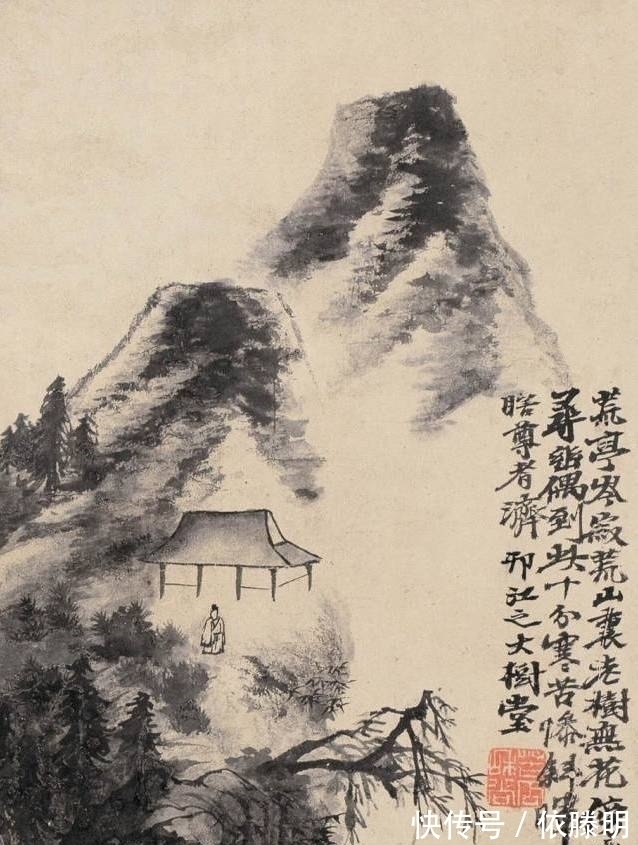 荒亭岑寂荒山裏老樹無花
尋偶到此十分寒苦斜
瞎尊者濟 邗江之大樹堂
快传号/依滕明